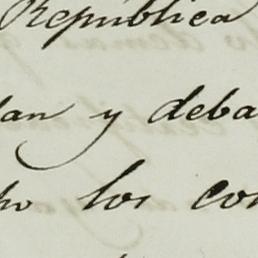 Republica
dan y deba
ho los con